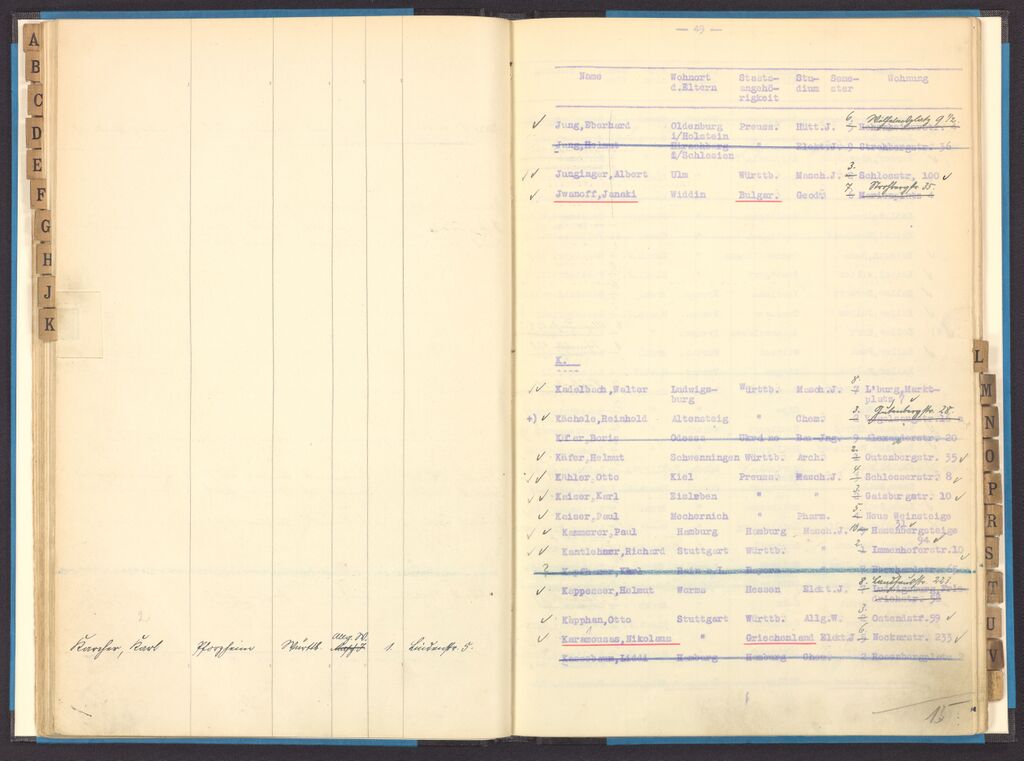 A
B
C
D
E
F
G
H
J
K
Karcher, Karl Pforzheim Württb. Allg. W. 1. Lindenstr. 5.
— 49 —
Name Wohnort d.Eltern Staats-angehö-rigkeit Stu-dium Seme-ster Wohnung
✓ Jung,Eberhard Oldenburg Preuss. Hütt.J. 6. Wilhelmsplatz 9 1/2
i/Holstein
Jung,Helmut Hirschberg " Elekt.J. 9 Strohbergstr. 36
i/Schlesien
✓ Junginger,Albert Ulm Württb. Masch.J. 3. Schlosstr. 100 ✓
✓ Jwanoff,Janaki Widdin Bulgar. Geod. 7. Strohbergstr. 35.
K.
✓ Kadelbach,Walter Ludwigs- Württb. Masch.J. 8. L'burg,Markt-
burg platz 7 ✓
+) ✓ Kächele,Reinhold Altensteig " Chem. 3. Gutenbergstr. 28.
Käfer,Boris Odessa Ukraine Bau-Jng. 9 Alexanderstr. 20
✓ Käfer,Helmut Schwenningen Württb. Arch. 2. Gutenbergstr. 35 ✓
✓ Kähler,Otto Kiel Preuss. Masch.J. 4. Schlosserstr. 8 ✓
✓ Kaiser,Karl Eisleben " " 3. Gaisburgstr. 10 ✓
✓ Kaiser,Paul Mechernich " Pharm. 5. Neue Weinsteige
✓ Kammerer,Paul Hamburg Hamburg Masch.J. 10. Hasenbergsteige
94 ✓
✓ Kantlehner,Richard Stuttgart Württb. " 2. Immenhoferstr.10 ✓
? Kapfhamer,Karl Rain a.L. Bayern Eberhardstr. 65
✓ Kappesser,Helmut Worms Hessen Elekt.J. 8. Landhausstr. 223.
✓ Kapphan,Otto Stuttgart Württb. Allg.W. Ostendstr.59 ✓
✓ Karamousas,Nikolaus " Griechenland Elekt.J. Neckarstr. 233 ✓
Kassebaum,Liddi Hamburg Hamburg Chem. 2 Rosenbergplatz 2
15
L
M
N
O
P
R
S
T
U
V